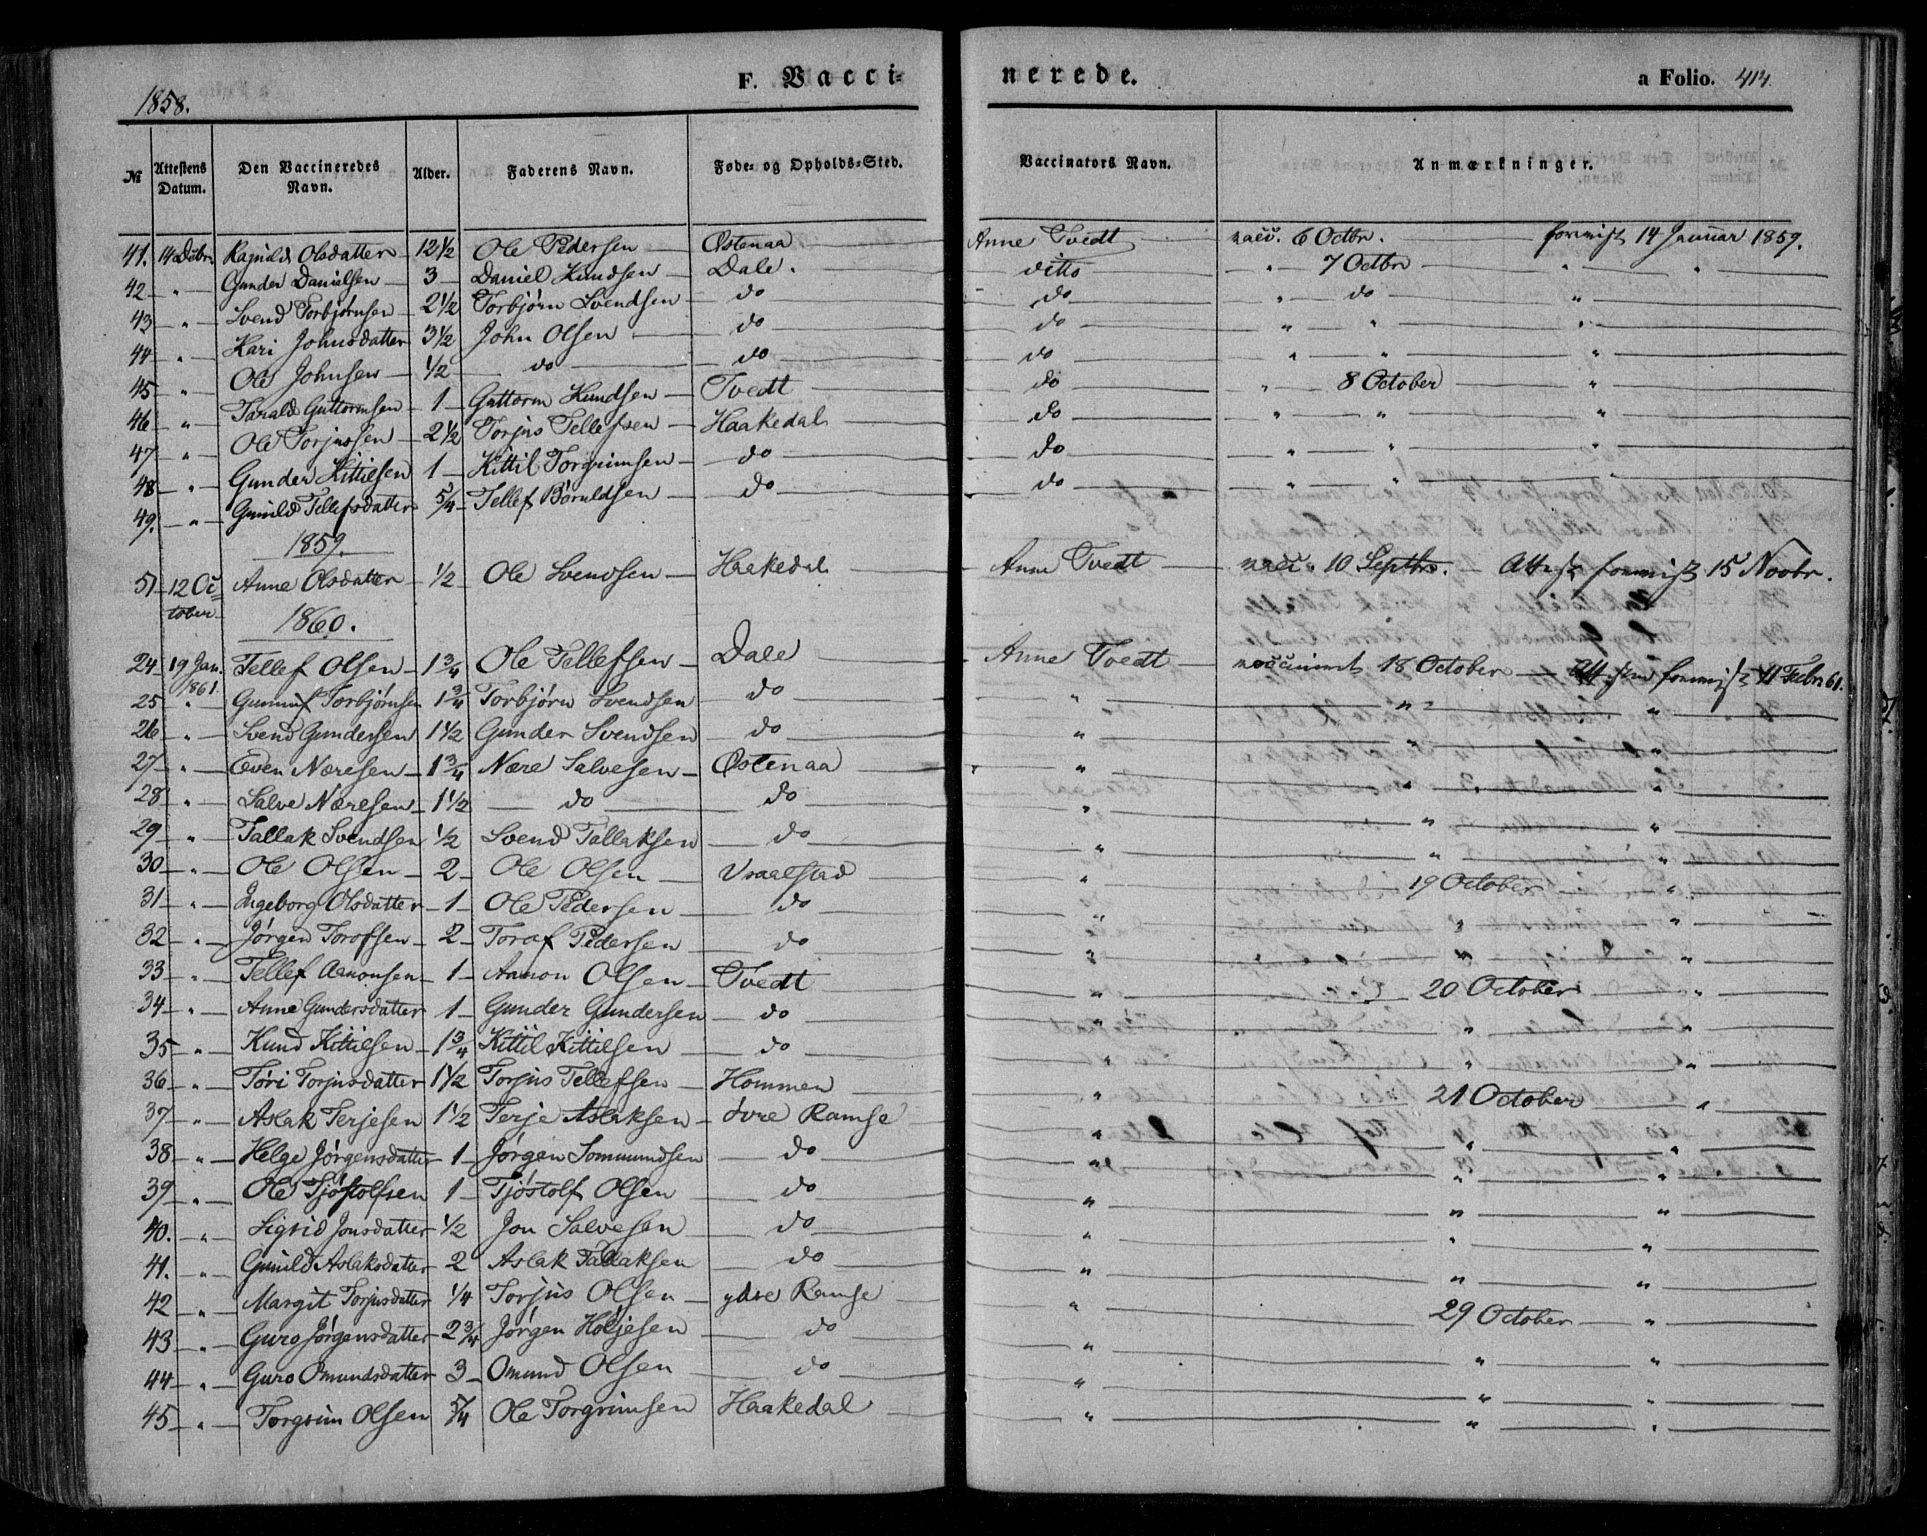 1858. F. Vacci= nerede. a Folio. 414
№ Attestens Datum. Den Vaccineredes Navn. Alder. Faderens Navn. Føde- og Opholds-Sted. Vaccinators Navn. Anmærkninger.
41. 14 Dcbr. Ragnild Olsdatter 12 1/2 Ole Pedersen Østenaa Anne Tvedt vacc. 6 Octbr. 14 Januar 1859.
42 " Gunder Danielsen 3 Daniel Knudsen Dale. ditto " 7 Octbr " "
43 " Svend Torbjørnsen 2 1/2 Torbjørn Svendsen do do " do "
44 " Kari Johnsdatter 3 1/2 John Olsen do do " " "
45 " Ole Johnsen 1/2 do do do " " "
46 " Tarald Guttormsen 1 Guttorm Knudsen Tvedt do " 8 October "
47 " Ole Torjussen 2 1/2 Torjus Tellefsen Haakedal do " " "
48 " Gunder Kittilsen 1 Kittil Torgrimsen do do " " "
49. " Gunild Tellefsdatter 5/4 Tellef Børuldsen do do " " "
1859.
51 12 Oc= Anne Olsdatter 1/2 Ole Svendsen Haakedal Anne Tvedt vacc. 10 Septbr. 15 Novbr.
tober
1860.
24 19 Jan. Tellef Olsen 1 3/4 Ole Tellefsen Dale Anne Tvedt vaccineret 18 October 11 Febr 61.
1861.
25 " Torbjørnsen 1 3/4 Torbjørn Svendsen do " " "
26 " Svend Gundersen 1 1/2 Gunder Svendsen do " " "
27 " Even Næresen 1 3/4 Nære Salvesen Østenaa " " "
28 " Salve Næresen 1 1/2 do do " " "
29 " Tallak Svendsen 1/2 Svend Tallaksen do " " "
30 " Ole Olsen 2 Ole Olsen Vraalstad " 19 October "
31 " Ingeborg Olsdatter 1 Ole Pedersen do " " "
32 " Jørgen Torofsen 2 Toraf Pedersen do " " "
33 " Tellef Aanonsen 1 Aanon Olsen Tvedt " 20 October "
34 " Anne Gundersdatter 1 Gunder Gundersen do " " "
35 " Knud Kittilsen 1 3/4 Kittil Kittilsen do " " "
36 " Tøri Torjusdatter 1 1/2 Torjus Tellefsen Hommen " 21 October "
37 " Aslak Terjesen 1 1/2 Terje Aslaksen Ramse " " "
38 " Helge Jørgensdatter 1 Jørgen Sommundsen do " " "
39 " Ole Tjøstolfsen 1 Tjøstolf Olsen do " " "
40. " Sigrid Jonsdatter 1/2 Jon Salvesen do " " "
41. " Gunild Aslaksdatter 2 Aslak Tallaksen do " " "
42 " Margit Torjusdatter 1/4 Torjus Olsen ydre Ramse " 29 October "
43 " Guro Jørgensdatter 2 3/4 Jørgen Holjesen do " " "
44 " Guro Omundsdatter 3 Omund Olsen do " " "
45 " Torgrim Olsen 5/4 Ole Torgrimsen Haakedal " " "